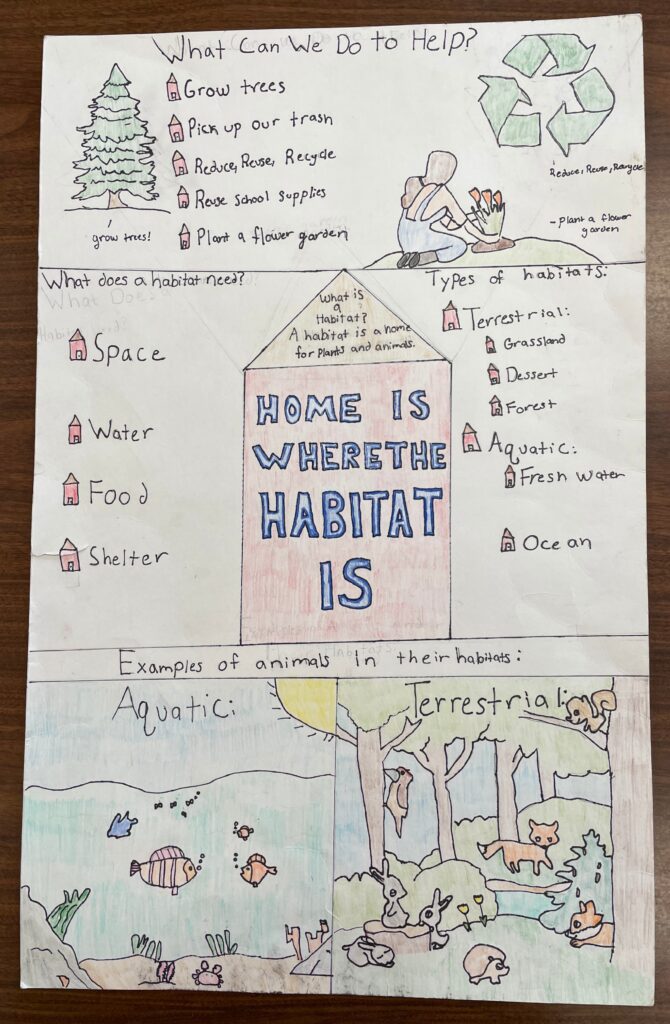 What Can We Do to Help?
Grow trees
Pick up our trash
Reduce, Reuse, Recycle
Reuse School Supplies
Plant a flower garden
grow trees!
Reduce, Reuse, Recycle
- Plant a flower
garden
What does a habitat need?
Space
Water
Food
Shelter
What is
a
Habitat?
A habitat is a home
for Plants and animals.
HOME IS
WHERE THE
HABITAT
IS
Types of habitats:
Terrestrial:
Grassland
Dessert
Forest
Aquatic:
Fresh water
Ocean
Examples of animals in their habitats:
Aquatic:
Terrestrial: